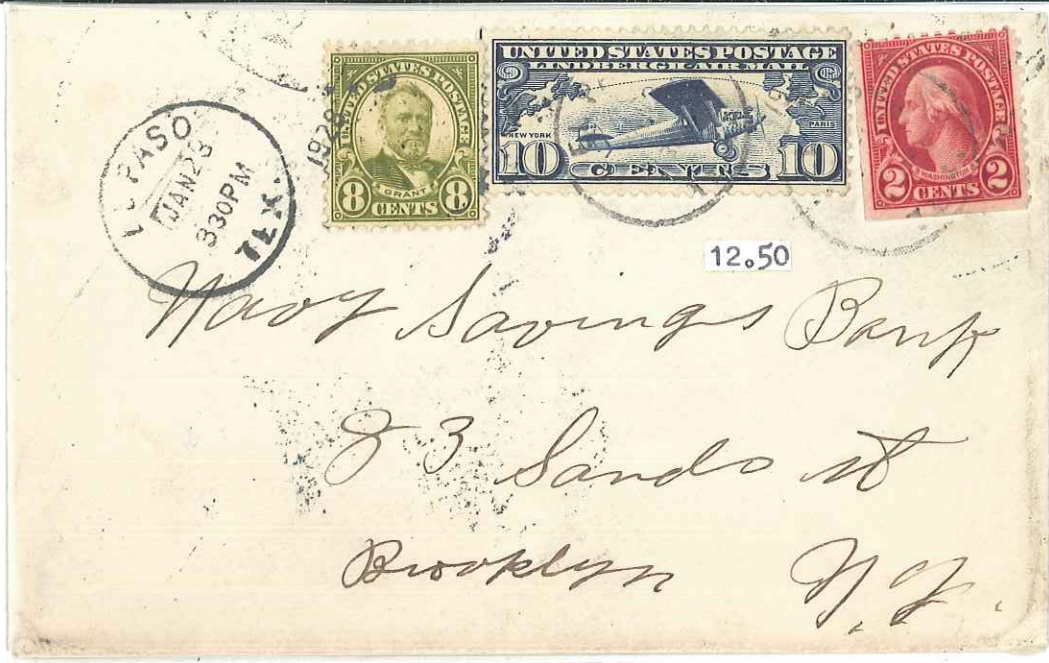 EL PASO
JAN 28
830 PM
TEX.
1928
UNITED STATES POSTAGE
GRANT
8 CENTS 8
UNITED STATES POSTAGE
LINDBERGH AIR MAIL
NEW YORK
PARIS
10 CENTS 10
UNITED STATES POSTAGE
WASHINGTON
2 CENTS 2
12.50
Navy Savings Bank
83 Sands st
Brooklyn N.Y.